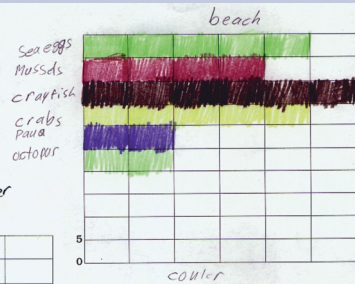 beach
Sea eggs
Mussels
crayfish
crabs
paua
octopus
er
5
0
couler